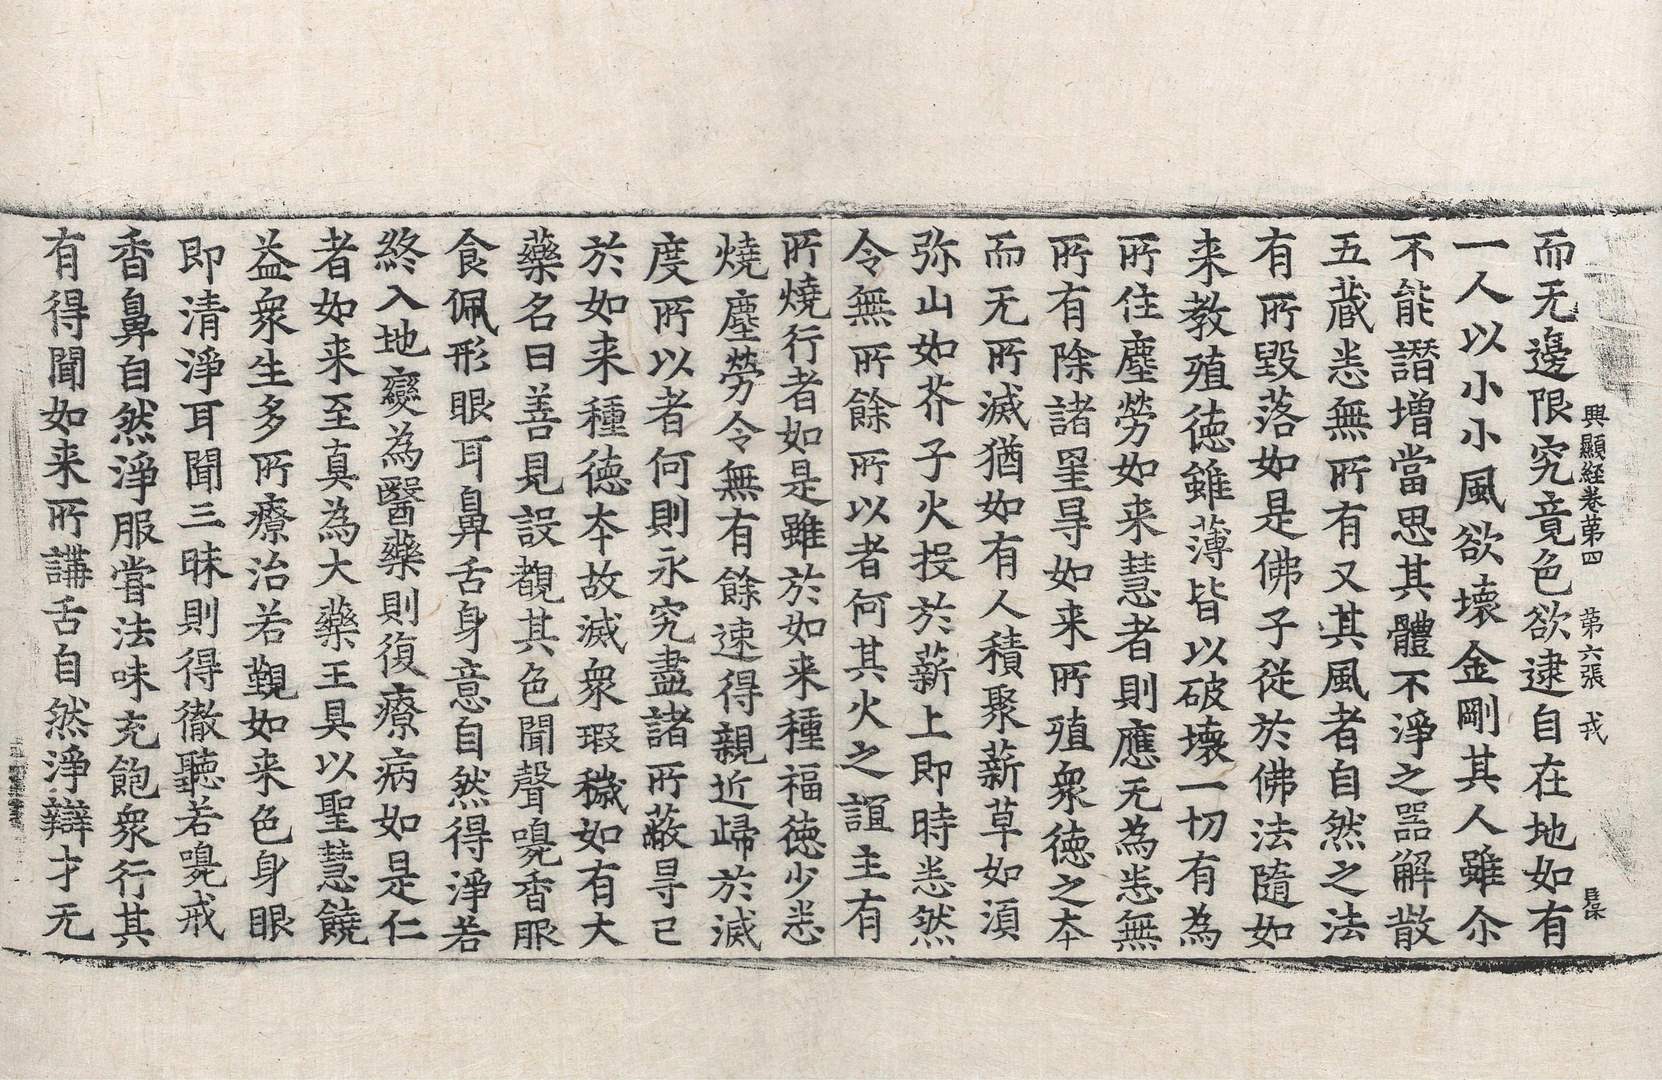 興顯経巻第四　第六張　戎
而无邊限究竟色欲逮自在地如有
一人以小小風欲壞金剛其人雖尒
不能譖增當思其體不淨之噐解散
五蔵悉無所有又其風者自然之法
有所毀落如是佛子従於佛法隨如
来教殖徳雖薄皆以破壞一切有為
所住塵勞如来慧者則應无為悉無
所有除諸罣㝵如来所殖衆徳之夲
而无所滅猶如有人積聚薪草如湏
弥山如芥子火投於薪上即時悉然
令無所餘所以者何其火之誼主有
所燒行者如是雖於如来種福徳少悉
燒塵勞令無有餘速得親近歸於滅
度所以者何則永究盡諸所蔽㝵已
於如来種徳夲故滅衆瑕穢如有大
藥名曰善見設覩其色聞聲嗅香服
食佩形眼耳鼻舌身意自然得淨若
終入地變為醫藥則復療病如是仁
者如来至真為大藥王具以聖慧饒
益衆生多所療治若覲如来色身眼
即清淨耳聞三昧則得徹聽若嗅戒
香鼻自然淨服甞法味充飽衆行其
有得聞如来所講舌自然淨辯才无